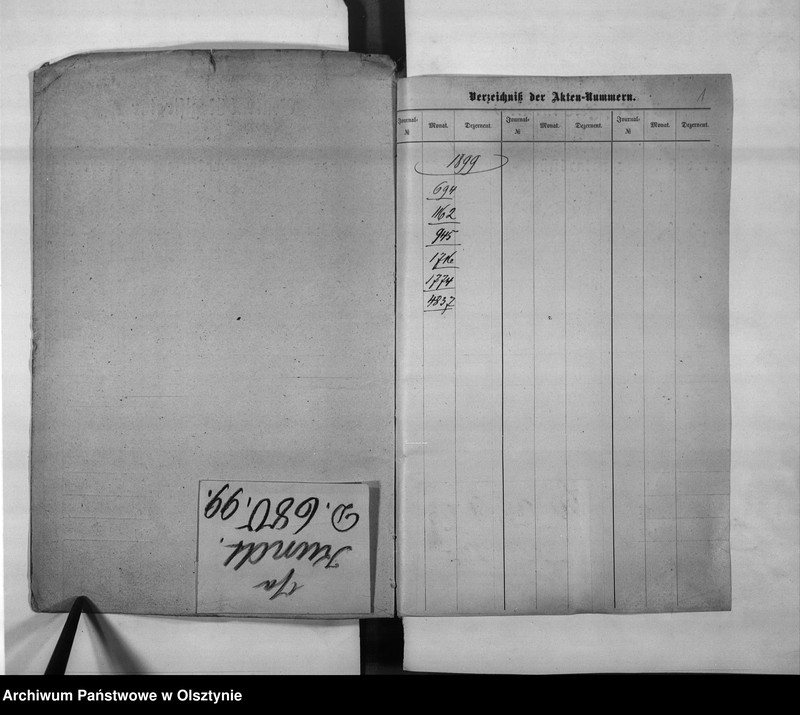 Verzeichniß der Akten-Nummern.
1
Journal-№ Monat. Dezernent. Journal-№ Monat. Dezernent. Journal-№ Monat. Dezernent.
1899
694
1162
945
1716
1774
4837
D. 680, 99.
Archiwum Państwowe w Olsztynie